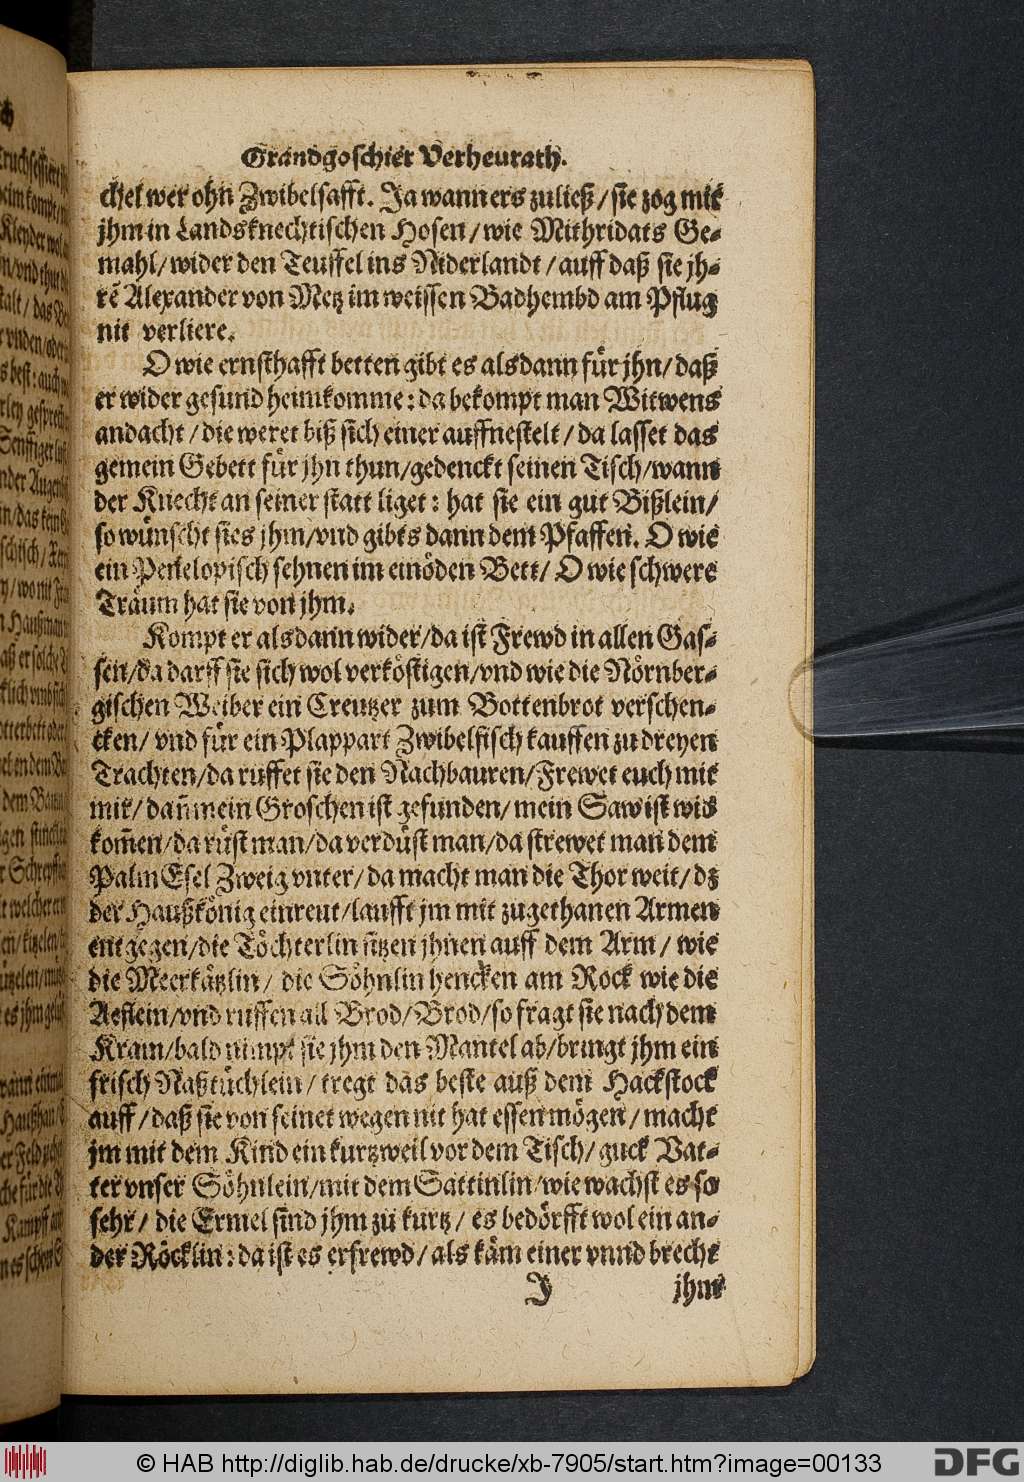 Grandgoschier Verheurath.
chel wer ohn Zwibelsafft. Ja wann ers zuließ/ sie zog mit
jhm in Landsknechtischen Hosen/ wie Mithridats Ge-
mahl/ wider den Teuffel ins Niderlandt/ auff daß sie jh-
rē Alexander von Metz im weissen Badhembd am Pflug
nit verliere.
O wie ernsthafft betten gibt es alsdann für jhn/ daß
er wider gesund heimkomme: da bekompt man Witwens
andacht/ die weret biß sich einer auffnestelt/ da lasset das
gemein Gebett für jhn thun/ gedenckt seinen Tisch/ wann
der Knecht an seiner statt liget: hat sie ein gut Bißlein/
so wünscht sies jhm/ vnd gibts dann dem Pfaffen. O wie
ein Penelopisch sehnen im einöden Bett/ O wie schwere
Träum hat sie von jhm.
Kompt er alsdann wider/ da ist Frewd in allen Gas-
sen/ da darff sie sich wol verköstigen/ vnd wie die Nörnber-
gischen Weiber ein Creutzer zum Bottenbrot verschen-
cken/ vnd für ein Plappart Zwibelfisch kauffen zu dreyen
Trachten/ da ruffet sie den Nachbauren/ Frewet euch mit
mir/ dañ mein Groschen ist gefunden/ mein Saw ist wid
kom̃en/ da rüst man/ da verdüst man/ da strewet man dem
Palm Esel Zweig vnter/ da macht man die Thor weit/ dz
der Haußkönig einreut/ laufft jm mit zugethanen Armen
entgegen/ die Töchterlin sitzen jhnen auff dem Arm/ wie
die Meerkätzlin/ die Söhnlin hencken am Rock wie die
Aeflein/ vnd ruffen all Brod/ Brod/ so fragt sie nach dem
Kram/ bald nimpt sie jhm den Mantel ab/ bringt jhm ein
frisch Naßtüchlein/ tregt das beste auß dem Hackstock
auff/ daß sie von seinet wegen nit hat essen mögen/ macht
jm mit dem Kind ein kurtzweil vor dem Tisch/ guck Vat-
ter vnser Söhnlein/ mit dem Sattinlin/ wie wachst es so
sehr/ die Ermel sind jhm zu kurtz/ es bedörfft wol ein an-
der Röcklin: da ist es erfrewd/ als käm einer vnnd brecht
J jhm
© HAB http://diglib.hab.de/drucke/xb-7905/start.htm?image=00133
DFG